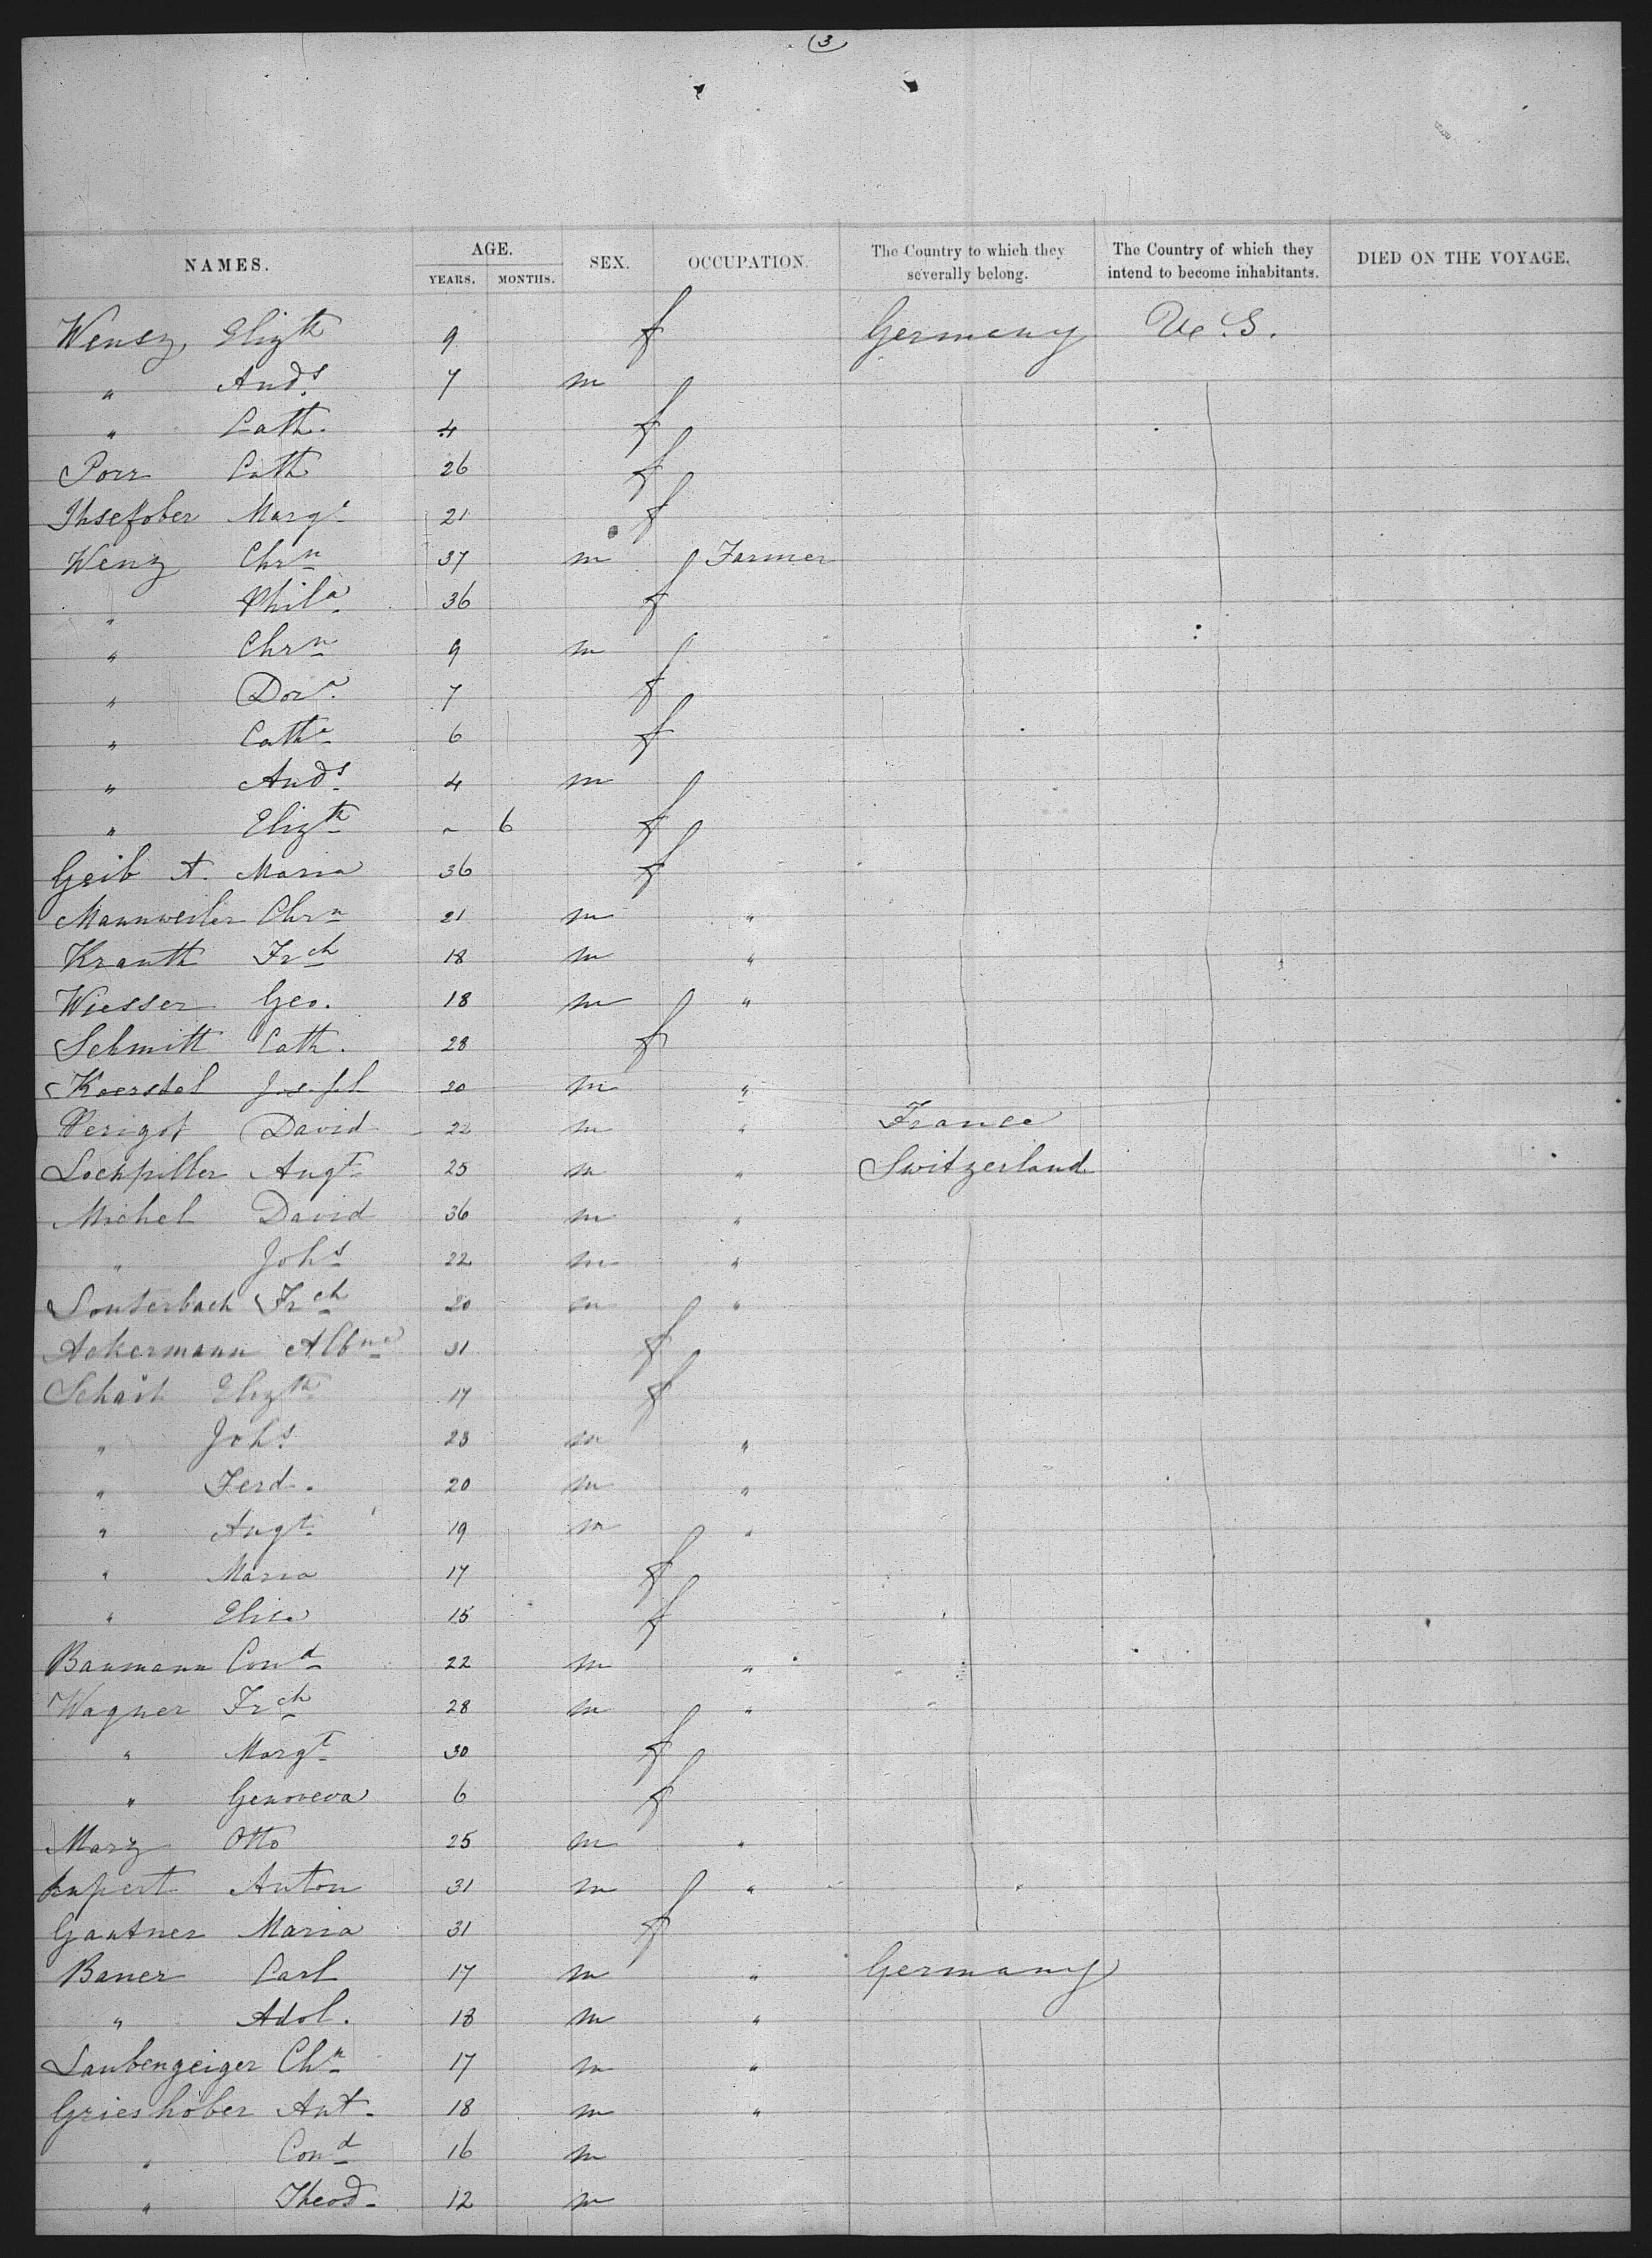 (3)
NAMES. AGE. SEX. OCCUPATION. The Country to which they severally belong. The Country of which they intend to become inhabitants. DIED ON THE VOYAGE.
YEARS. MONTHS.
Wensz, Elizth 9 f Germany U.S.
" Ands 7 m
" Cath. 4 f
Porr Cath 26 f
Margt 21 f
Wenz Chrn 37 m Farmer
" Phila 36 f
" Chrn 9 m
" Dora 7 f
" Catha 6 f
" Ands 4 m
" Elizth ~ 6 f
Geib A. Maria 36 f
Mannweiler Chrn 21 m "
Krauth Frch 18 m "
Wiesser Geo. 18 m "
Schmitt Cath. 28 f
Koerstel Joseph 20 m "
Perigot David 22 m " France
Augt 25 m " Switzerland
Michel David 36 m "
" Johs 22 m "
Lauterbach Frch 20 m "
Ackermann Albne 31 f
Elizth 17 f
" Johs 28 m "
" Ferd. 20 m "
" Augt 19 m "
" Maria 17 f
" Elise 15 f
Baumann Cond 22 m "
Wagner Frch 28 m "
" Margt 30 f
" Genoveva 6 f
Marz Otto 25 m "
Anton 31 m "
Gautner Maria 31 f
Bauer Carl 17 m " Germany
" Adol. 18 m "
Laubengeiger Chn 17 m "
Grieshober Ant. 18 m "
" Cond 16 m
" Theod. 12 m